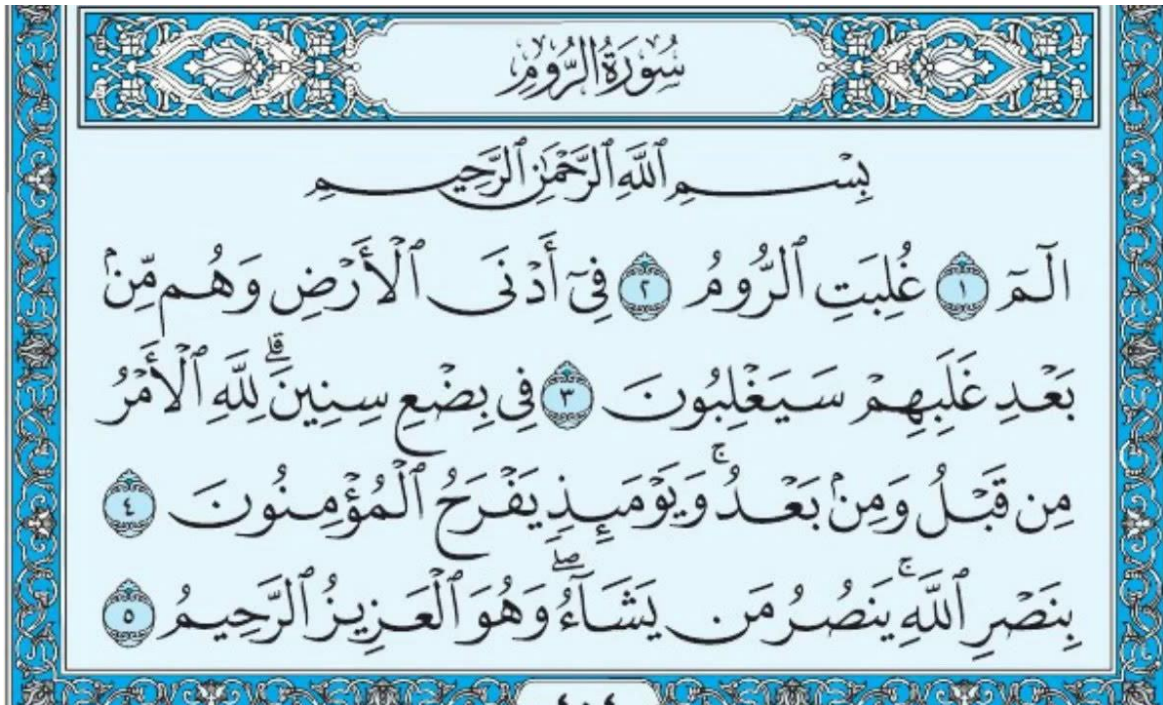 سُورَةُ الرُّومِ
بِسْمِ ٱللَّهِ ٱلرَّحْمَٰنِ ٱلرَّحِيمِ
الٓمٓ ١ غُلِبَتِ ٱلرُّومُ ٢ فِىٓ أَدْنَى ٱلْأَرْضِ وَهُم مِّنۢ
بَعْدِ غَلَبِهِمْ سَيَغْلِبُونَ ٣ فِى بِضْعِ سِنِينَۗ لِلَّهِ ٱلْأَمْرُ
مِن قَبْلُ وَمِنۢ بَعْدُۚ وَيَوْمَئِذٍ يَفْرَحُ ٱلْمُؤْمِنُونَ ٤
بِنَصْرِ ٱللَّهِۚ يَنصُرُ مَن يَشَآءُۖ وَهُوَ ٱلْعَزِيزُ ٱلرَّحِيمُ ٥